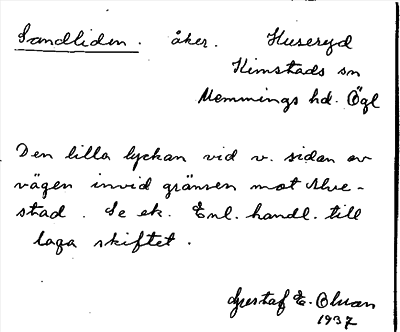 Sandliden. åker. Huseryd
Kimstads sn
Memmings hd. Ögl
Den lilla lyckan vid v. sidan av
vägen invid gränsen mot Alve-
stad. Se ek. Enl. handl. till
laga skiftet.
Gustaf E. Olsson
1937